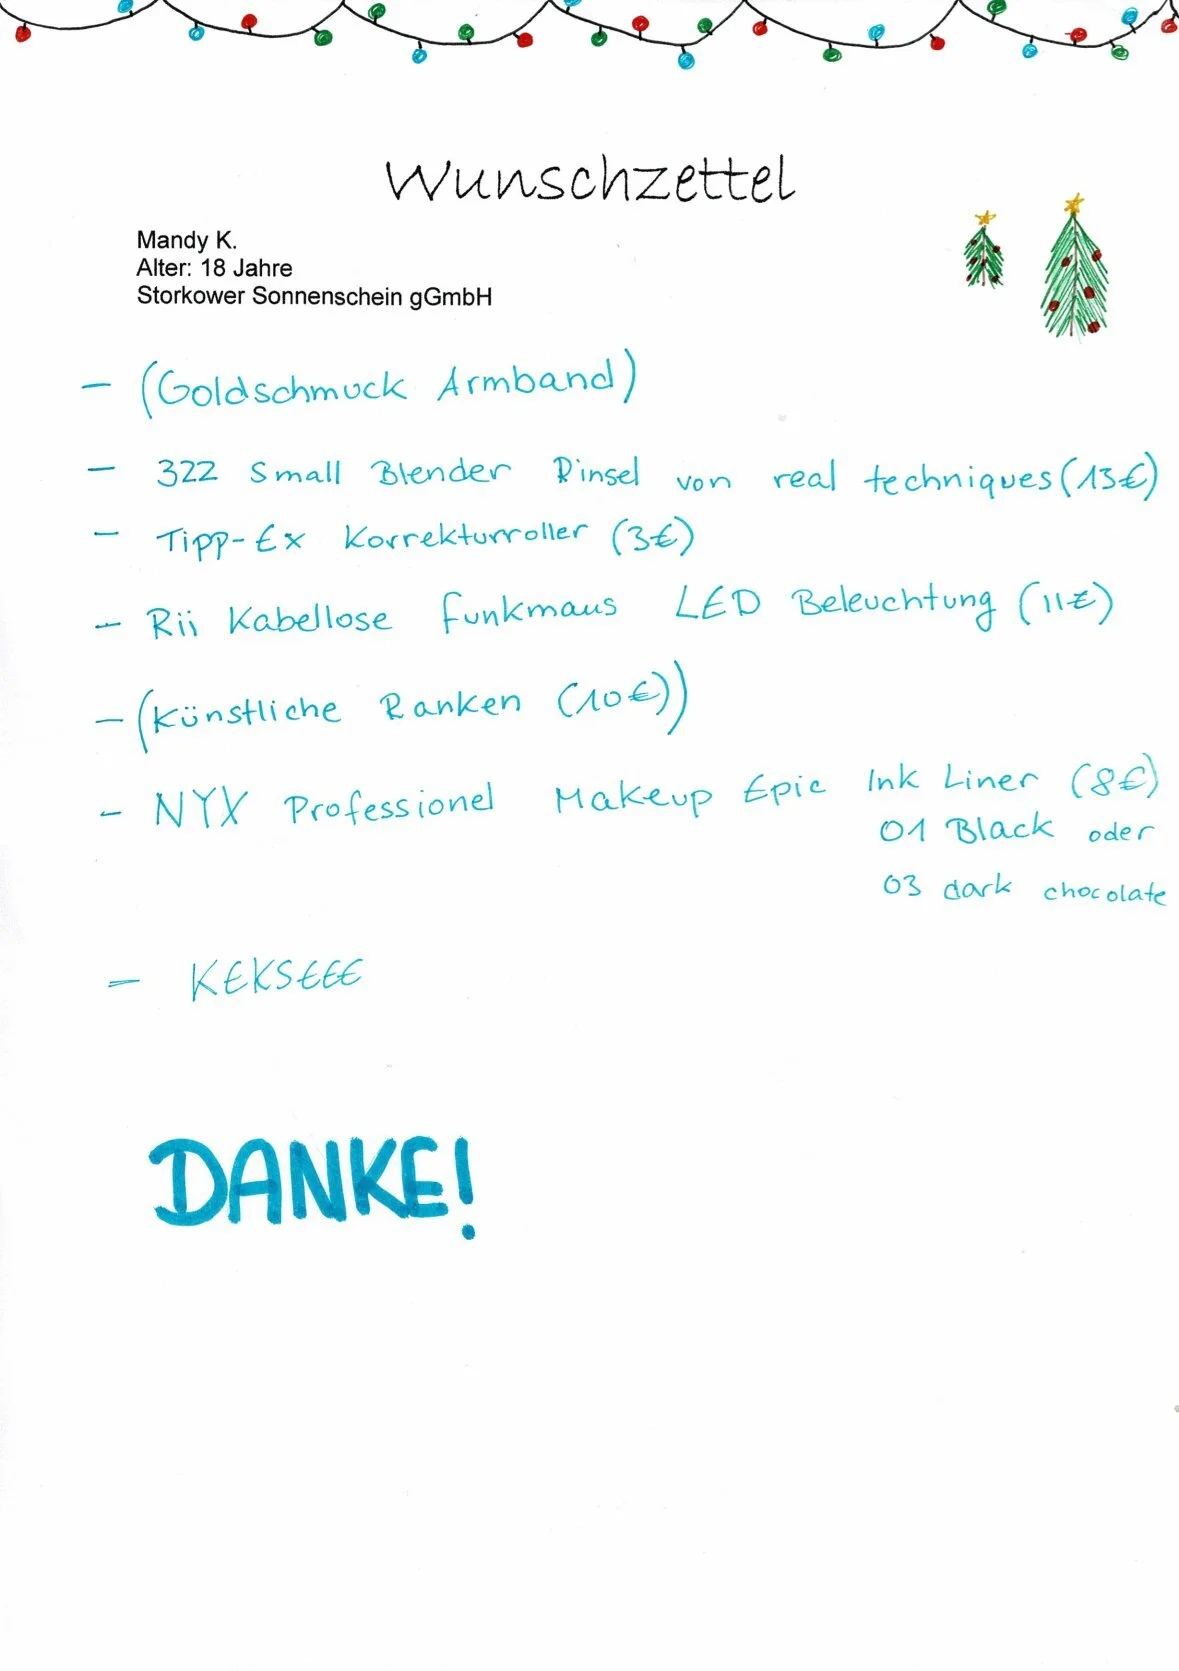 Wunschzettel
Mandy K.
Alter: 18 Jahre
Storkower Sonnenschein gGmbH
- (Goldschmuck Armband)
- 322 Small Blender Pinsel von real techniques (13€)
- Tipp-Ex Korrekturroller (3€)
- Rii Kabellose Funkmaus LED Beleuchtung (11€)
- (Künstliche Ranken (10€))
- NYX Professionel Makeup Epic Ink Liner (8€)
01 Black oder
03 dark chocolate
- KEKSEEE
DANKE!